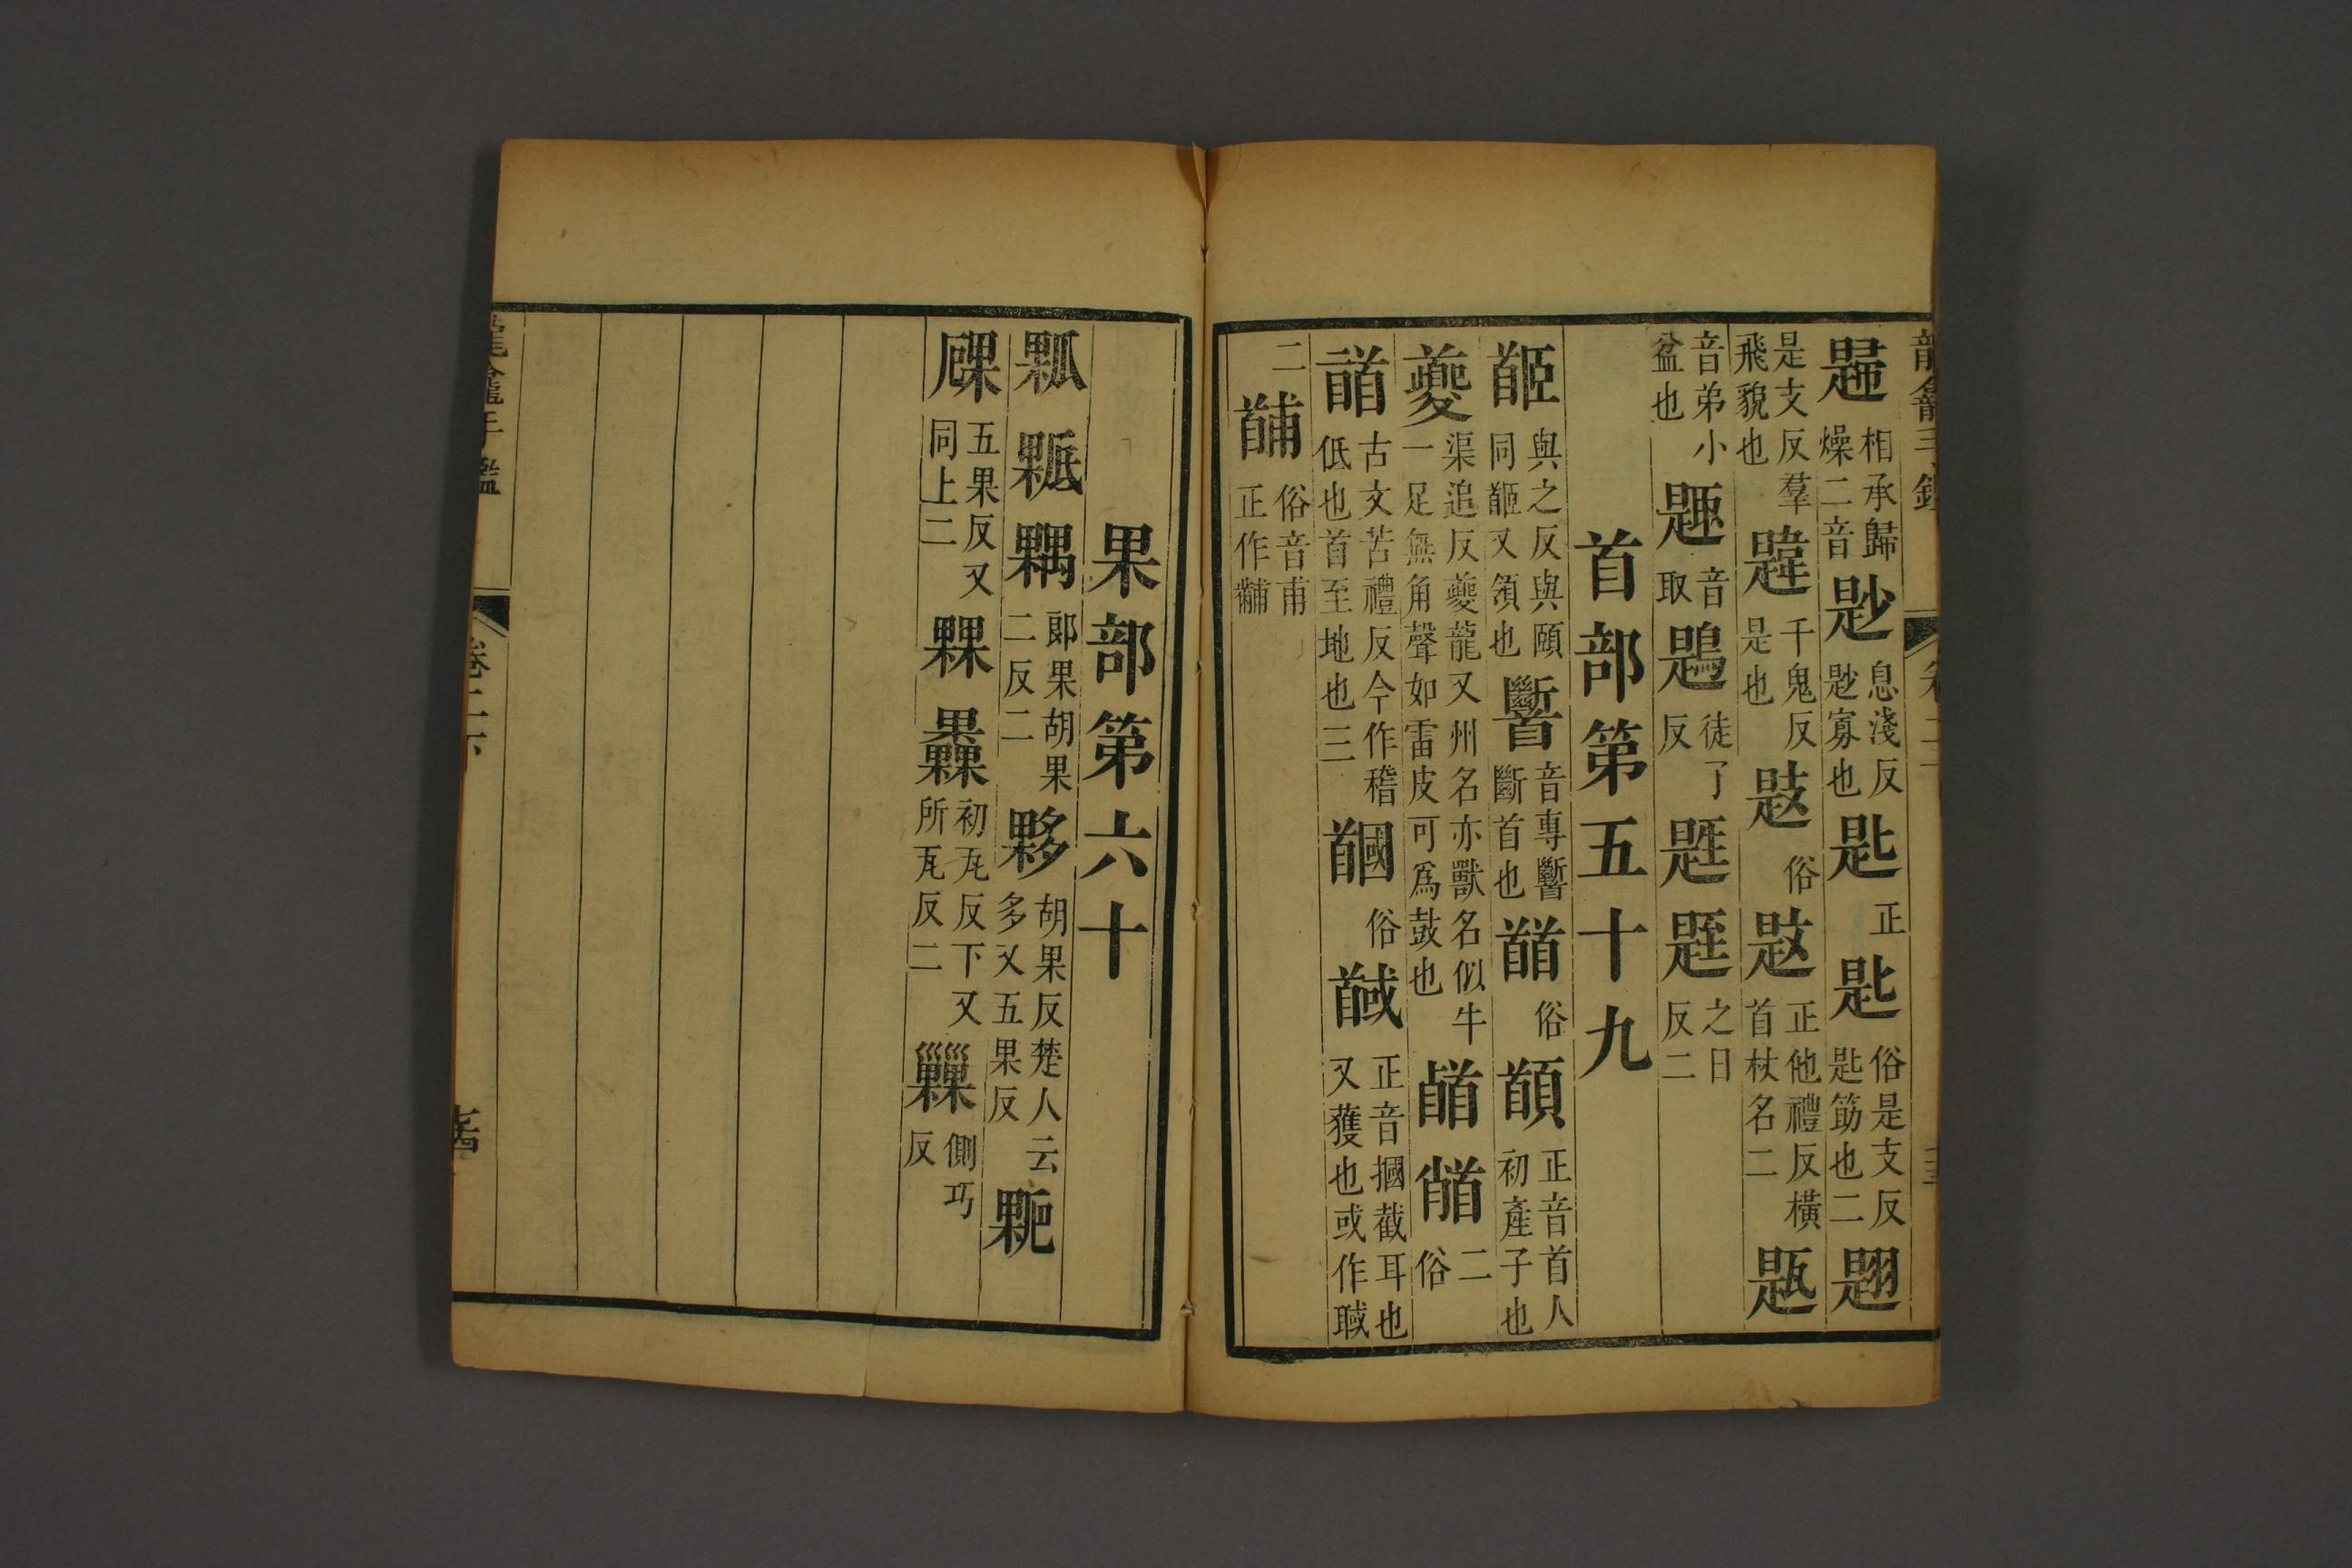 龍龕手鑑
卷二
相承歸燥二音尟息淺反尟寡也匙正俗是支反匙筯也二翄
是支反羣飛貌也韙千鬼反是也俗正他禮反橫首杖名二
音弟小盆也音取徒了反之日反二
首部第五十九
與之反與頤同又頷也音專斷首也俗正音首人初產子也
夔渠追反夔龍又州名亦獸名似牛一足無角聲如雷皮可爲鼓也二俗
古文苦禮反今作稽低也首至地也三俗馘正音摑截耳也又獲也或作聝
二俗音甫正作黼
果部第六十
郎果胡果二反二夥胡果反楚人云多又五果反
五果反又同上二初瓦反下又所瓦反二側巧反
龍龕手鑑
卷二下